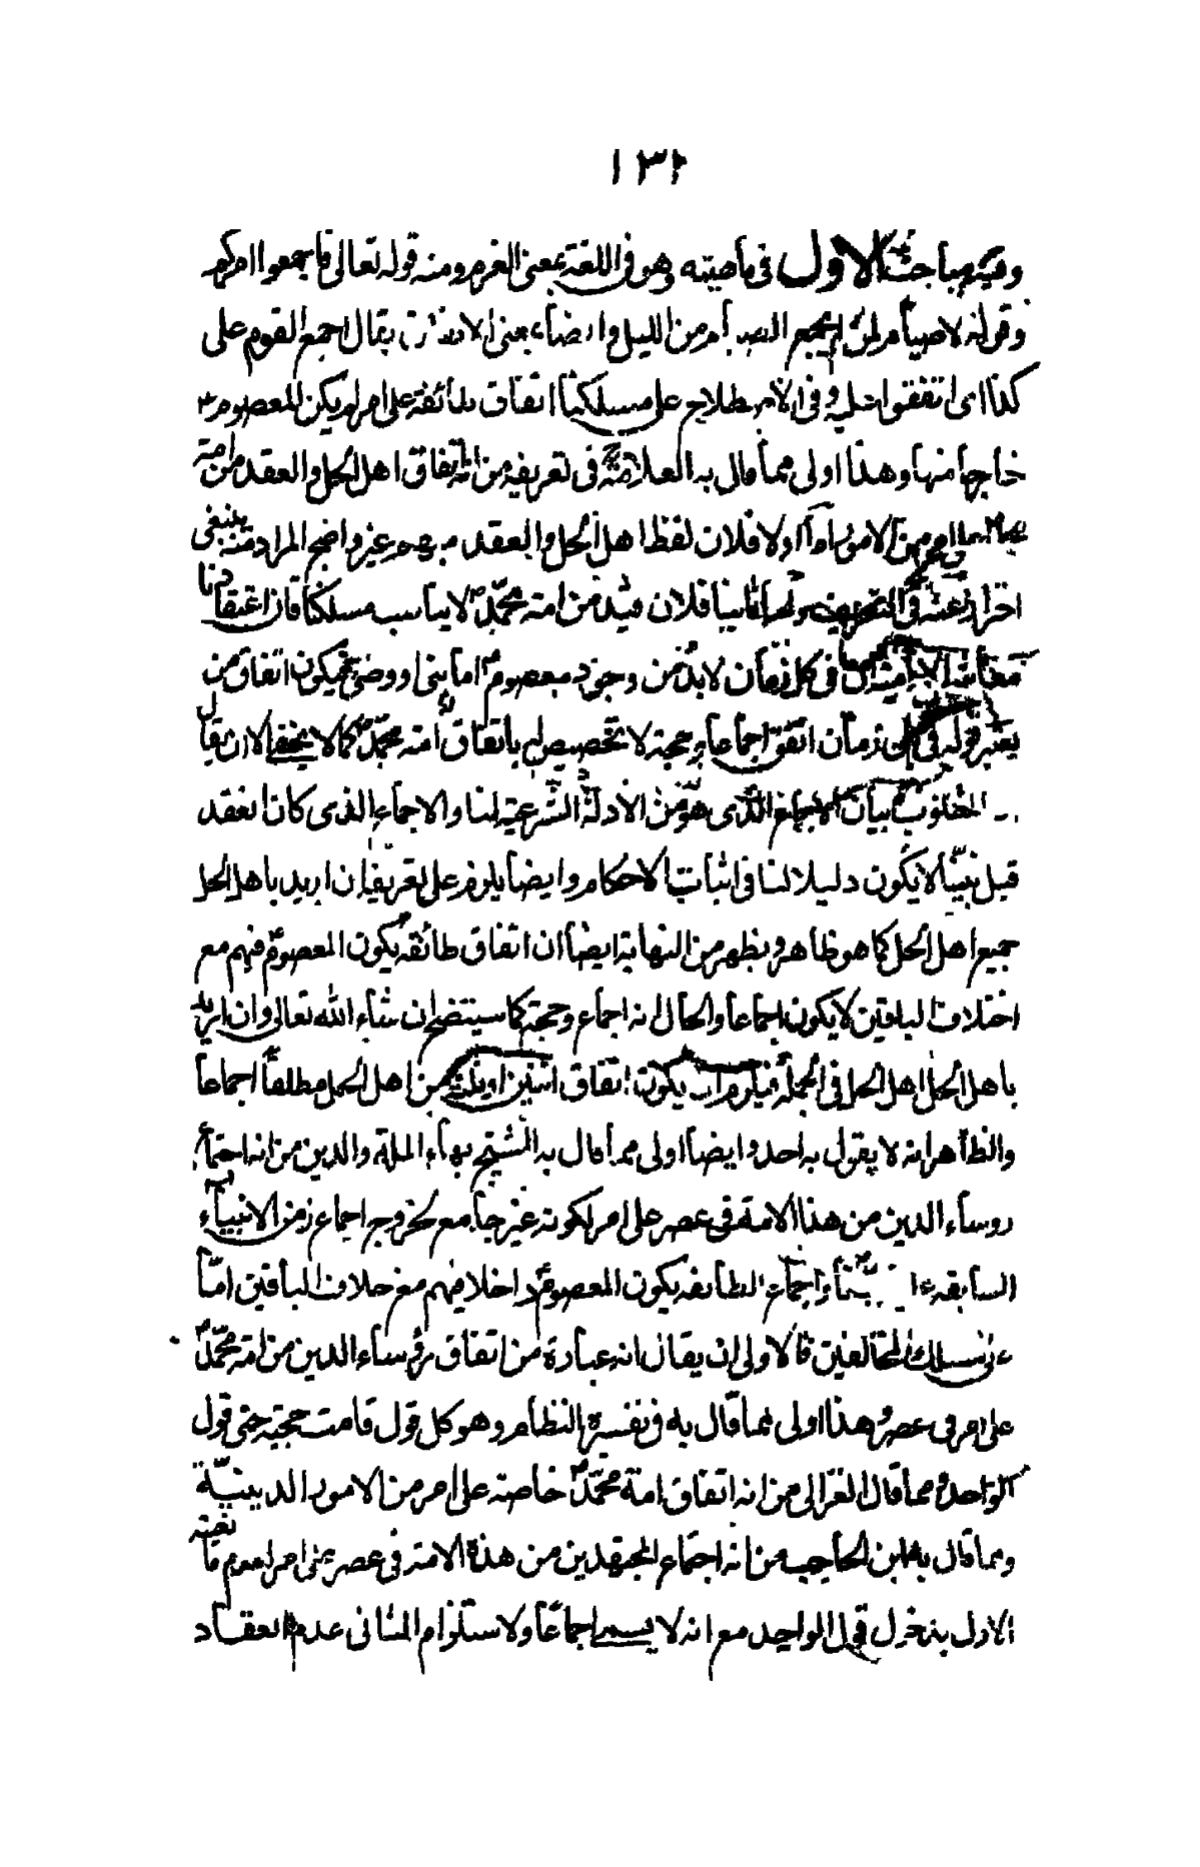 ١٣٢
وفيه مباحث الاول فى ماهيته وهو فى اللغة بمعنى العزم ومنه قوله تعالى فاجمعوا امركم
وقوله لا صيام لمن لم يجمع الصيام من الليل وايضاً بمعنى الاتفاق يقال اجمع القوم على
كذا اى اتفقوا عليه وفى الاصطلاح على مسلكنا اتفاق طائفة على امر لم يكن المعصوم
خارجاً منها وهذا اولى مما قال به العلامة فى تعريفه من انه اتفاق اهل الحل والعقد من امة
على امر من الامور اما اولا فلان لفظ اهل الحل والعقد غير واضح المراد منه ينبغى
احترازعنه فى التعريف واما ثانيا فلان قيد من امة محمّد لا يناسب مسلكنا فان اعتقادنا
معاشر الامامية ان فى كل زمان لابد من وجود معصوم اما نبى او وصى فيكون اتفاق من
يعتبر قوله فى كل زمان اتفق اجماعاً وحجة لا تخصيص له باتفاق امة محمّد كما لا يخفى الا ان يقال
المطلوب بيان الاجماع الذى هو من الادلة الشرعية لنا والاجماع الذى كان انعقد
قبل نبيّنا لا يكون دليلا لنا فى اثبات الاحكام وايضاً يلزم على تعريفه ان اريد باهل الحل
جميع اهل الحل كما هو ظاهر ويظهر من النهاية ايضاً ان اتفاق طائفة يكون المعصوم فيهم مع
اختلاف الباقين لا يكون اجماعا والحال انه اجماع وحجة كما سيتضح ان شاء الله تعالى وان اريد
باهل الحل اهل الحل فى الجملة فيلزم ان يكون اتفاق اثنين او ثلثة من اهل الحل مطلقاً اجماعاً
والظاهر انه لا يقول به احد وايضاً اولى مما قال به الشيخ بهاء الملة والدين من انه اجتماع
روساء الدين من هذا الامة فى عصر على امر لكونه غير جامع لخروج اجماع زمن الانبياء
السابقة نبيّنا واجماع الطايفه يكون المعصوم داخلا فيهم مع خلاف الباقين امّا
على مسلك المخالفين فالاولى ان يقال انه عبارة من اتفاق رؤساء الدين من امة محمّد
على امر فى عصر وهذا اولى مما قال به فى تفسيره النظام وهو كل قول قامت حجيته حتى قول
الواحد ومما قال الغزالى من انه اتفاق امة محمّد خاصة على امر من الامور الدينيّة
ومما قال به ابن الحاجب من انه اجتماع المجتهدين من هذه الامة فى عصر على امر لعدم مانعيّة
الاول بدخول قول الواحد مع انه لا يسمى اجماعاً ولاستلزام الثانى عدم انعقاد